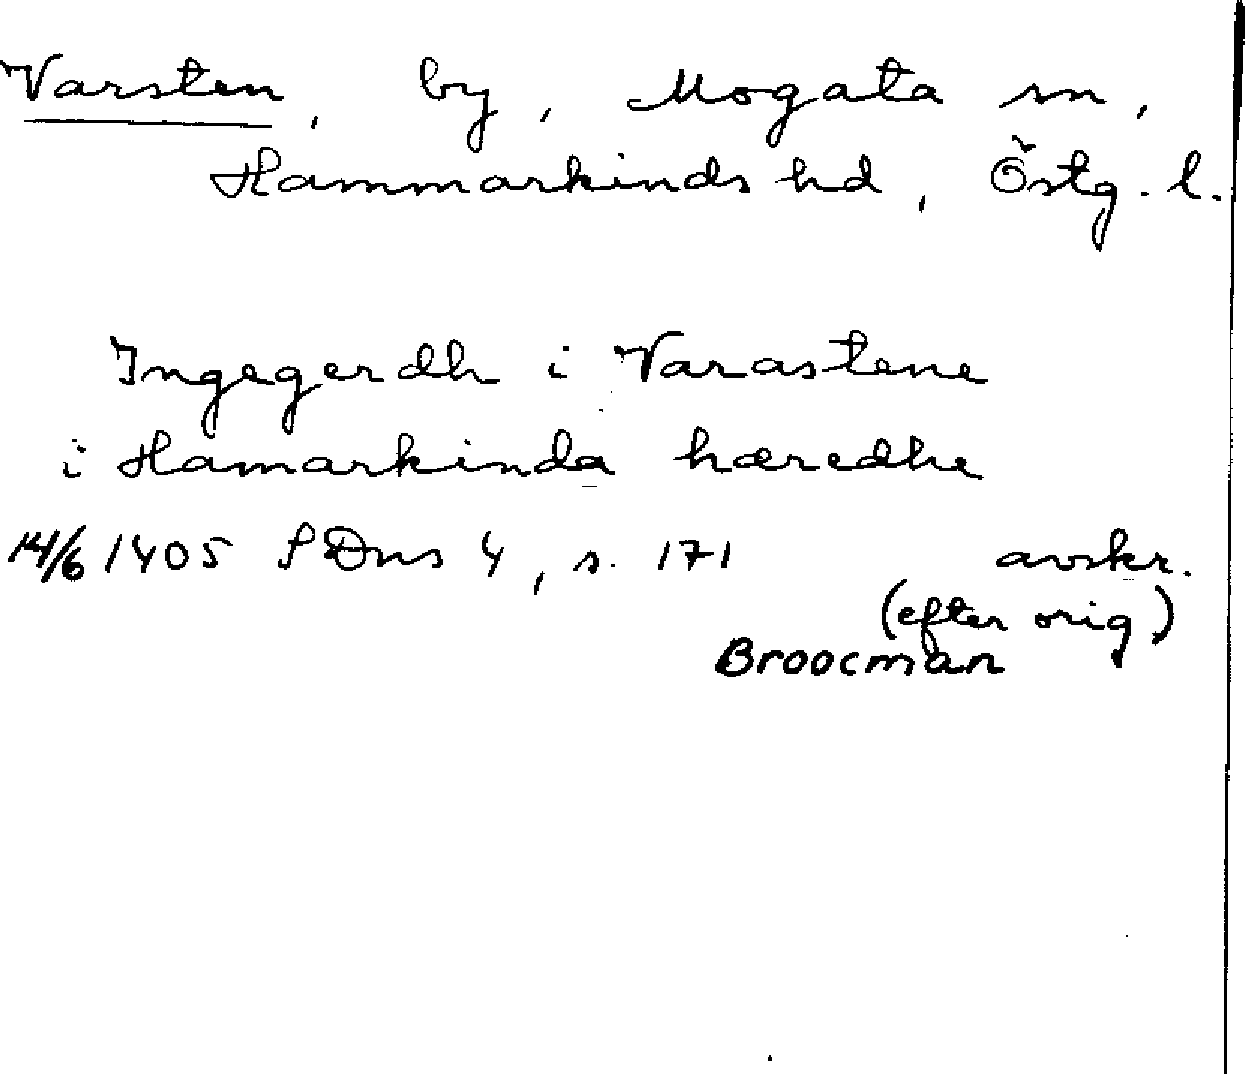 Varsten, by, Mogata sn,
Hammarkinds hd, Östg. l.
Ingegerdh i Varastene
i Hamarkinda hæredhe
14/6 1405 SDns 4, s. 171 avskr.
(efter orig)
Broocman